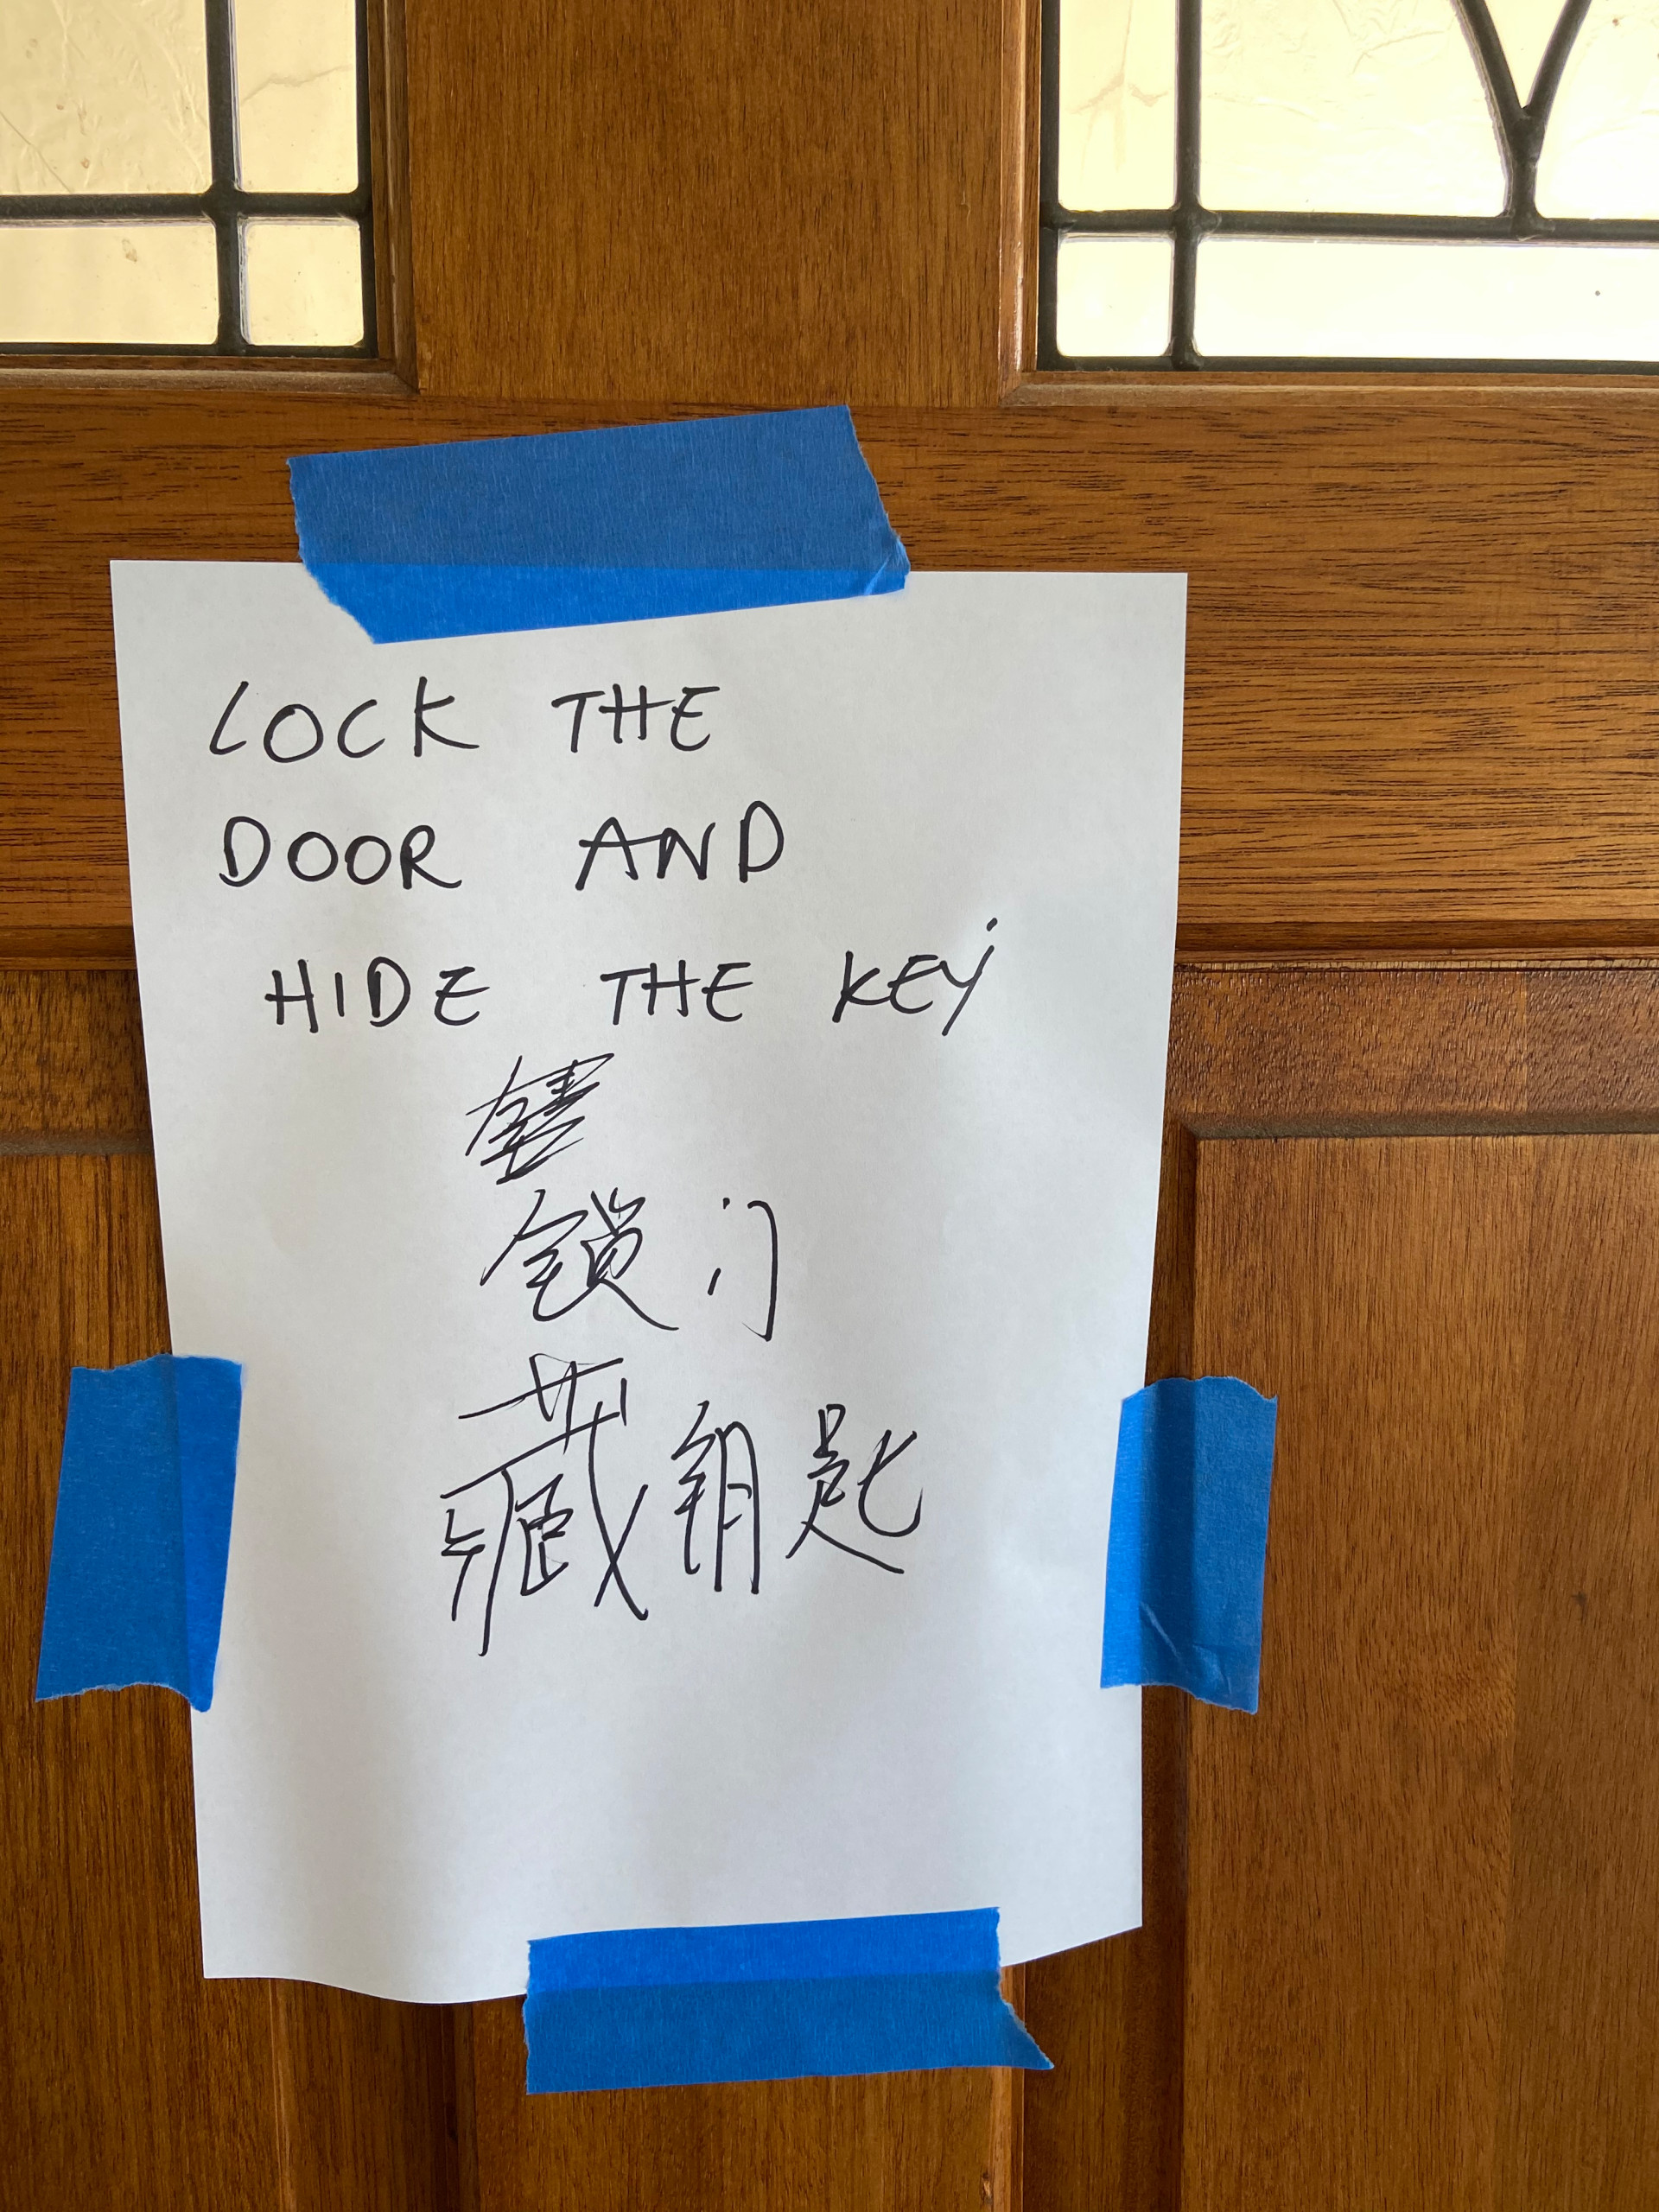 LOCK THE
DOOR AND
HIDE THE KEY
锁门
藏钥匙